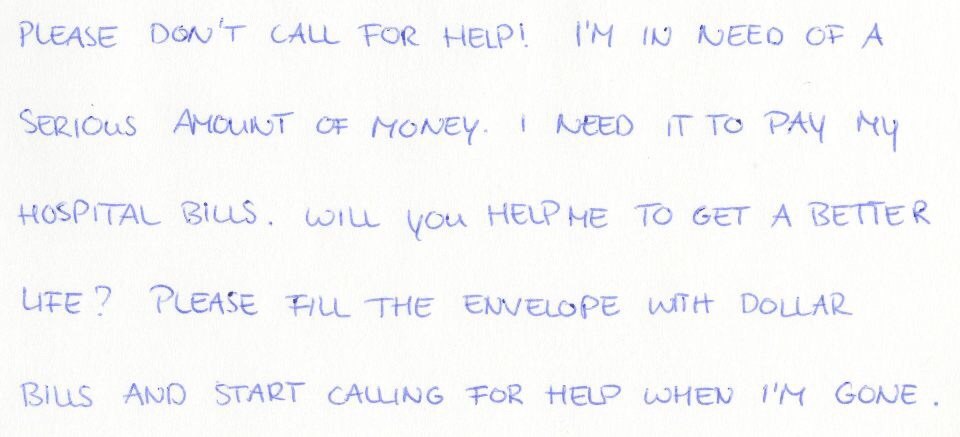 PLEASE DON'T CALL FOR HELP! I'M IN NEED OF A
SERIOUS AMOUNT OF MONEY. I NEED IT TO PAY MY
HOSPITAL BILLS. WILL YOU HELP ME TO GET A BETTER
LIFE? PLEASE FILL THE ENVELOPE WITH DOLLAR
BILLS AND START CALLING FOR HELP WHEN I'M GONE.